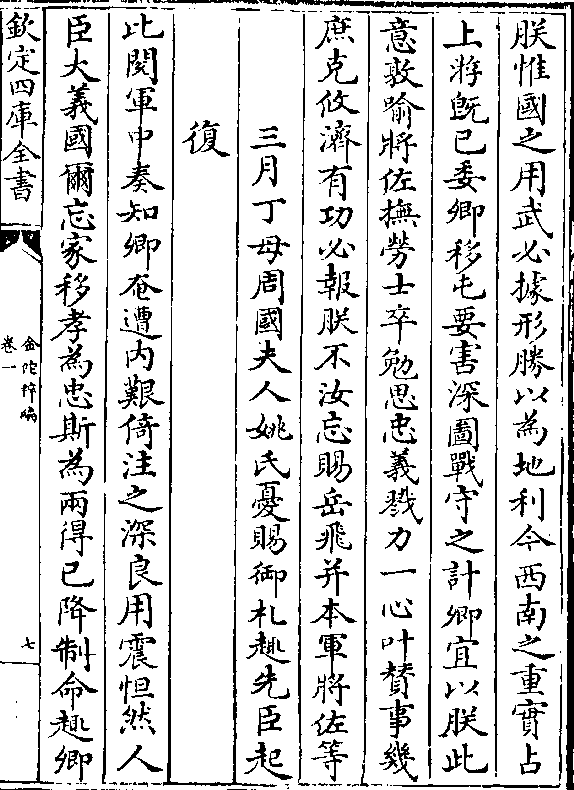 朕惟國之用武必據形勝以為地利今西南之重實占
上游既已委卿移屯要害深圖戰守之計卿宜以朕此
意敦喻將佐撫勞士卒勉思忠義戮力一心叶賛事幾
庶克攸濟有功必報朕不汝忘賜岳飛并本軍將佐等
三月丁母周國夫人姚氏憂賜御札趣先臣起
復
比閱軍中奏知卿奄遭内艱倚注之深良用震怛然人
臣大義國爾忘家移孝為忠斯為兩得已降制命趣卿
欽定四庫全書
金陀稡編
卷一
七